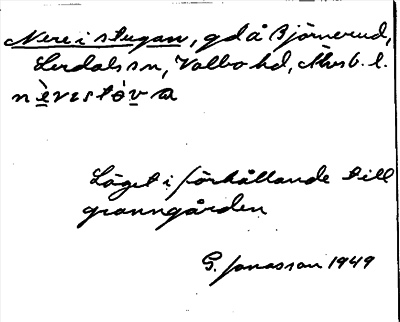 Nere i stugan, gd å Björnerud,
Lerdals sn, Valbo hd, Älvsb. l.
nèrɪstòva
Läget i förhållande till
granngården
G. Jonasson 1949